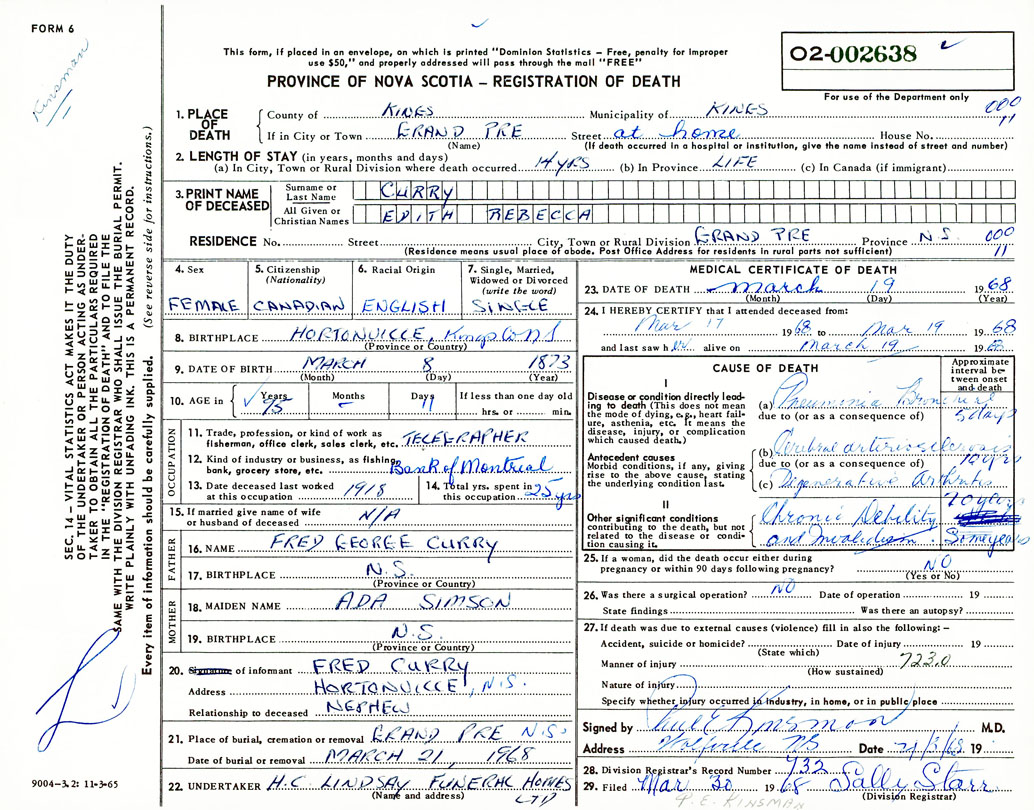 FORM 6
Kinsman
This form, if placed in an envelope, on which is printed "Dominion Statistics – Free, penalty for improper
use $50," and properly addressed will pass through the mail "FREE"
PROVINCE OF NOVA SCOTIA – REGISTRATION OF DEATH
02-002638
For use of the Department only
1. PLACE OF DEATH
County of KINGS Municipality of KINGS 000
11
If in City or Town GRAND PRE Street at home House No.
(Name) (If death occurred in a hospital or institution, give the name instead of street and number)
2. LENGTH OF STAY (in years, months and days)
(a) In City, Town or Rural Division where death occurred 14 yrs (b) In Province LIFE (c) In Canada (if immigrant)
3. PRINT NAME OF DECEASED
Surname or Last Name CURRY
All Given or Christian Names EDITH REBECCA
RESIDENCE No. Street City, Town or Rural Division GRAND PRE Province N.S. 000
11
(Residence means usual place of abode. Post Office Address for residents in rural parts not sufficient)
4. Sex FEMALE
5. Citizenship (Nationality) CANADIAN
6. Racial Origin ENGLISH
7. Single, Married, Widowed or Divorced (write the word) SINGLE
8. BIRTHPLACE HORTONVILLE, Kings Co NS
(Province or Country)
9. DATE OF BIRTH MARCH 8 1873
(Month) (Day) (Year)
10. AGE in Years 95 Months – Days 11 If less than one day old
hrs. or min.
OCCUPATION
11. Trade, profession, or kind of work as
fisherman, office clerk, sales clerk, etc. TELEGRAPHER
12. Kind of industry or business, as fishing,
bank, grocery store, etc. Bank of Montreal
13. Date deceased last worked
at this occupation 1918
14. Total yrs. spent in
this occupation 25 yrs
15. If married give name of wife
or husband of deceased N/A
FATHER
16. NAME FRED GEORGE CURRY
17. BIRTHPLACE N.S.
(Province or Country)
MOTHER
18. MAIDEN NAME ADA SIMSON
19. BIRTHPLACE N.S.
(Province or Country)
20. Signature of informant FRED CURRY
Address HORTONVILLE, N.S.
Relationship to deceased NEPHEW
21. Place of burial, cremation or removal GRAND PRE N.S.
Date of burial or removal MARCH 21, 1968
22. UNDERTAKER H.C. LINDSAY FUNERAL HOMES
(Name and address) LTD
MEDICAL CERTIFICATE OF DEATH
23. DATE OF DEATH March 19 1968
(Month) (Day) (Year)
24. I HEREBY CERTIFY that I attended deceased from:
Mar 17 1968 to Mar 19 1968
and last saw her alive on March 19 1968
CAUSE OF DEATH
Approximate interval between onset and death
I
Disease or condition directly leading to death (This does not mean the mode of dying, e.g., heart failure, asthenia, etc. It means the disease, injury, or complication which caused death.)
(a) Pneumonia Bronchial
due to (or as a consequence of) 5 days
Antecedent causes
Morbid conditions, if any, giving rise to the above cause, stating the underlying condition last.
(b) Cerebral arteriosclerosis
due to (or as a consequence of) 10 yrs
(c) Degenerative Arthritis
20 years
II
Other significant conditions
contributing to the death, but not related to the disease or condition causing it.
Chronic Debility
and Invalidism. Some years
25. If a woman, did the death occur either during
pregnancy or within 90 days following pregnancy? NO
(Yes or No)
26. Was there a surgical operation? NO Date of operation 19
State findings Was there an autopsy?
27. If death was due to external causes (violence) fill in also the following: –
Accident, suicide or homicide? Date of injury 19
(State which)
Manner of injury 723.0
(How sustained)
Nature of injury
Specify whether injury occurred in industry, in home, or in public place
Signed by Paul E Kinsman M.D.
Address Wolfville NS Date 21/3/68 19
28. Division Registrar's Record Number 732
29. Filed Mar 30 1968 Sally Starr
(Division Registrar)
P.E. KINSMAN
SEC. 14 – VITAL STATISTICS ACT MAKES IT THE DUTY
OF THE UNDERTAKER OR PERSON ACTING AS UNDER-
TAKER TO OBTAIN ALL THE PARTICULARS REQUIRED
IN THE "REGISTRATION OF DEATH" AND TO FILE THE
SAME WITH THE DIVISION REGISTRAR WHO SHALL ISSUE THE BURIAL PERMIT.
WRITE PLAINLY WITH UNFADING INK. THIS IS A PERMANENT RECORD.
Every item of information should be carefully supplied. (See reverse side for instructions.)
9004–3.2: 11-3-65